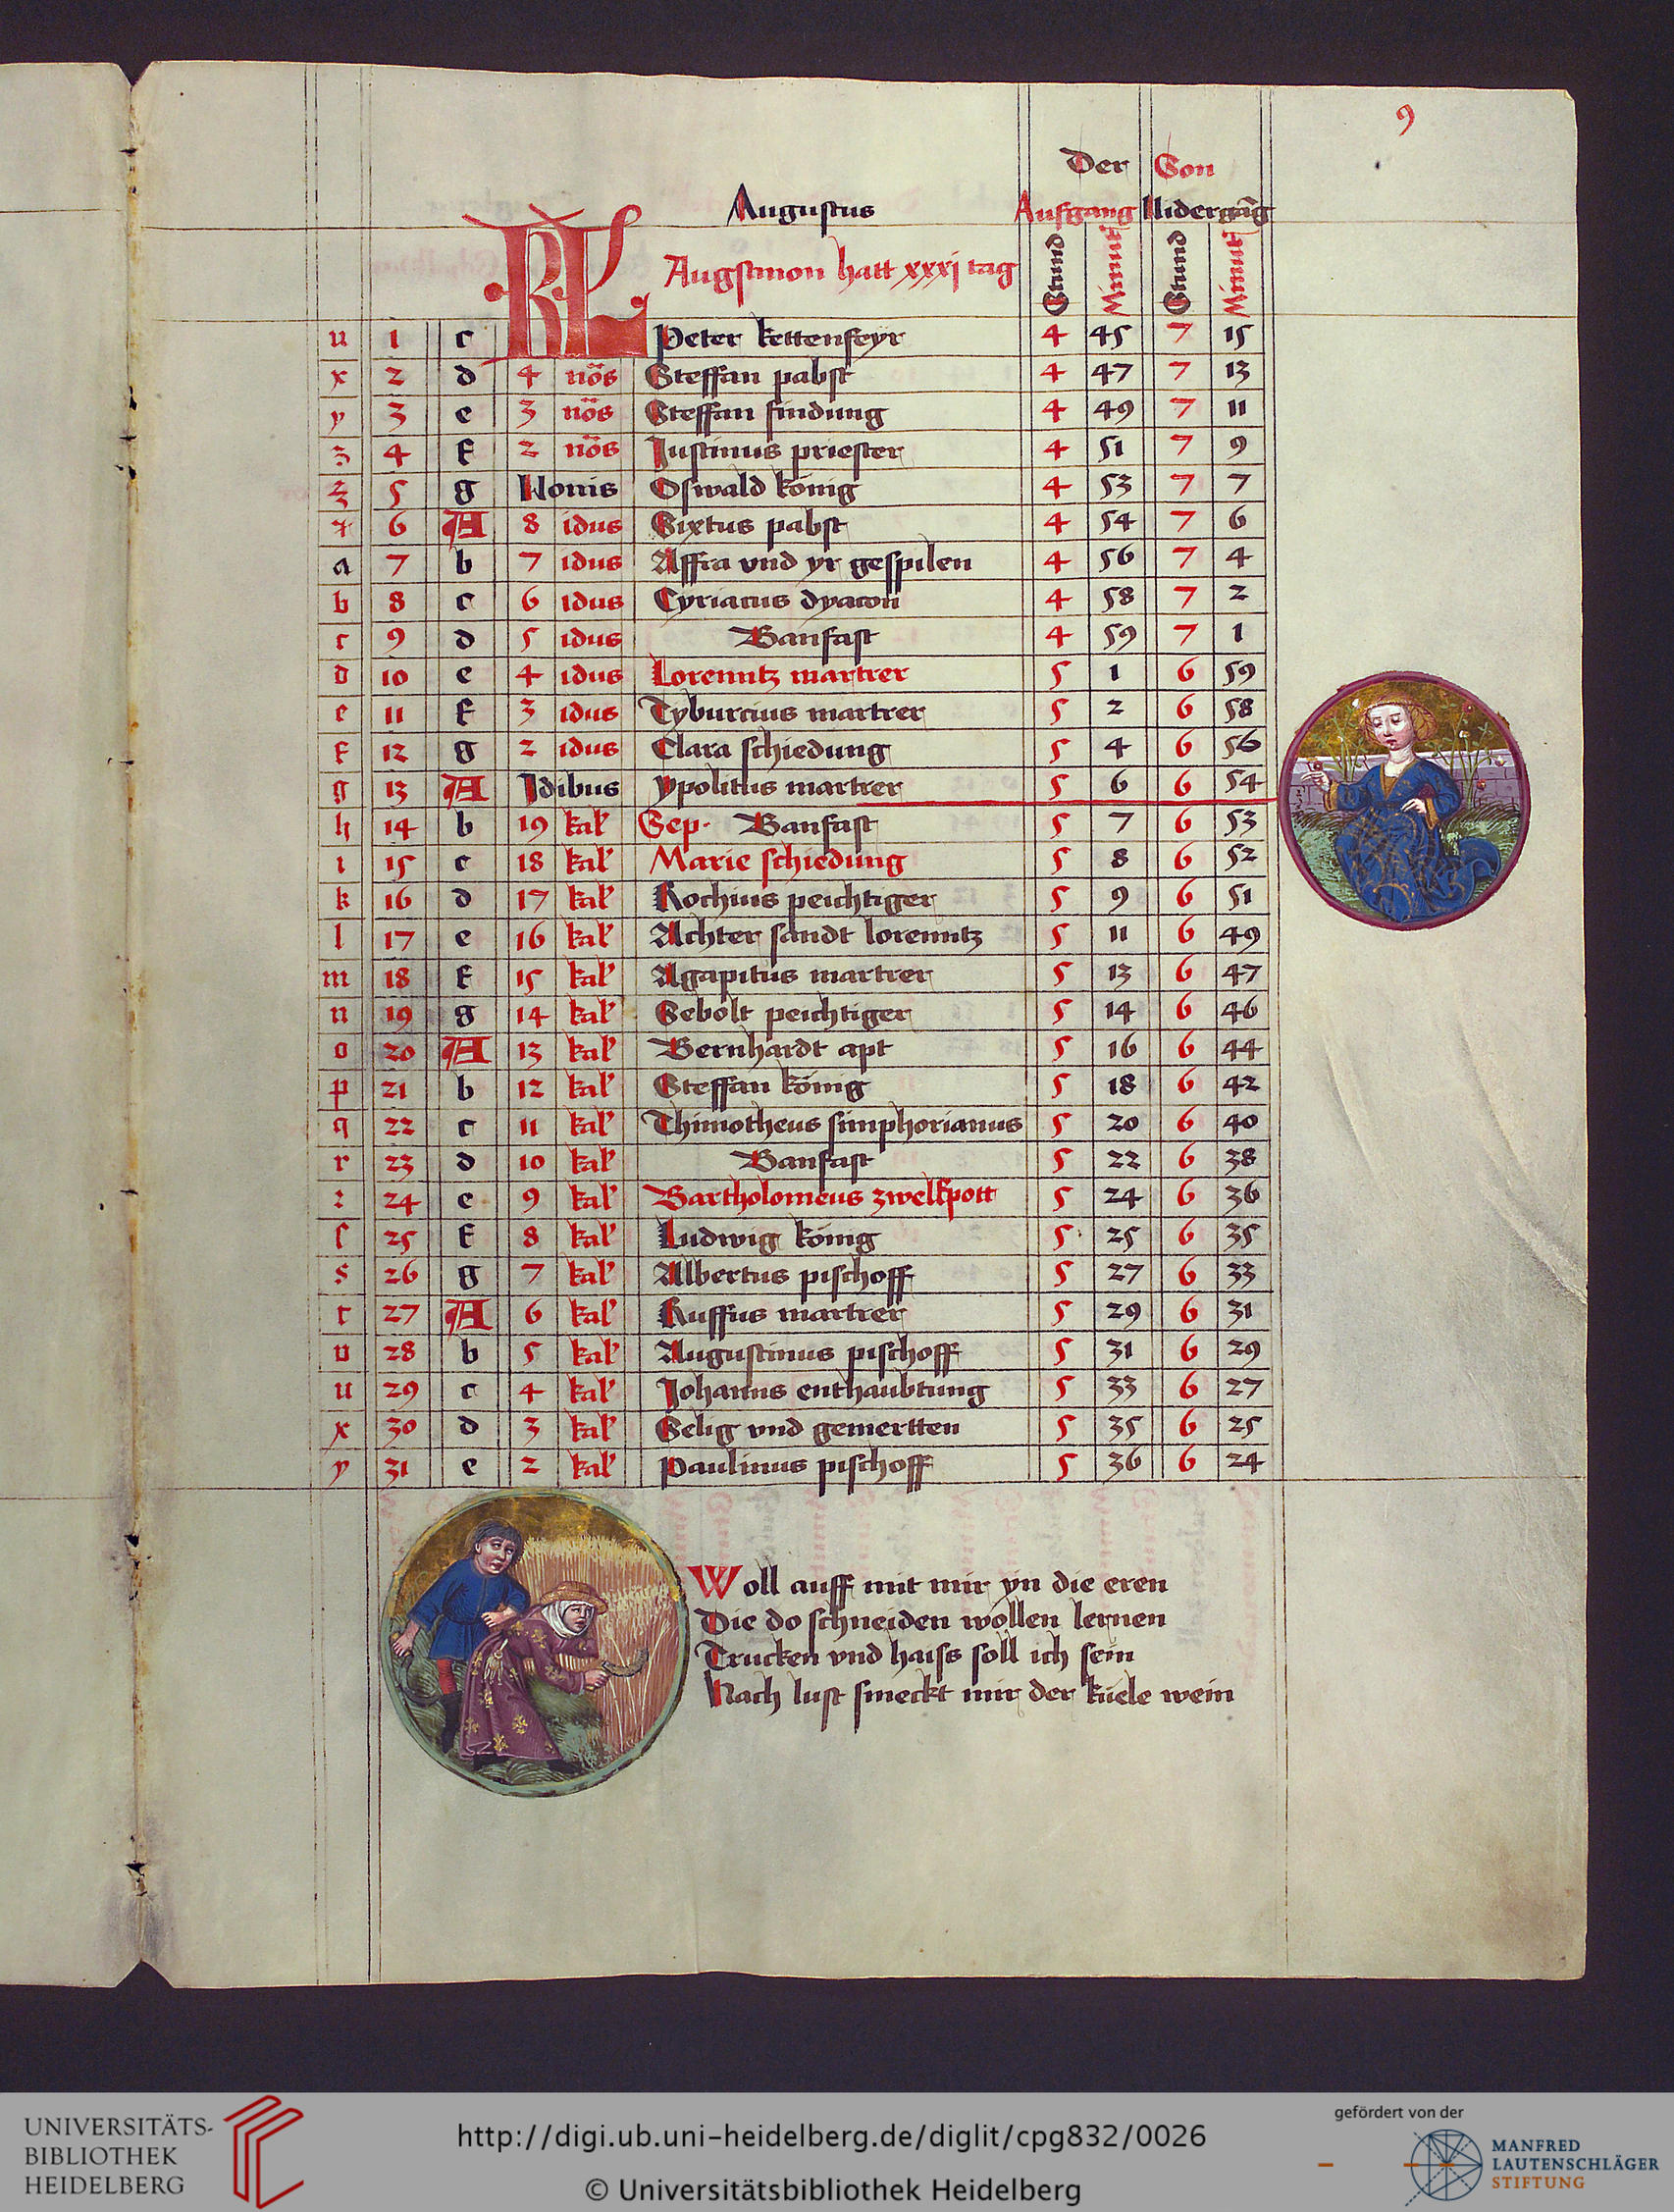 9
Der Son
Augustus Aufgang Nidergãg
KL Augstmon hatt xxxj tag Stund Minut Stund Minut
u 1 c Peter kettenfeyr 4 45 7 15
x 2 d 4 nõs Steffan pabst 4 47 7 13
y 3 e 3 nõs Steffan findung 4 49 7 11
z 4 f 2 nõs Justinus priester 4 51 7 9
5 g Nonis Oswald konig 4 53 7 7
6 A 8 idus Sixtus pabst 4 54 7 6
a 7 b 7 idus Affra vnd yr gespilen 4 56 7 4
b 8 c 6 idus Cyriacus dyacon 4 58 7 2
c 9 d 5 idus Banfast 4 59 7 1
d 10 e 4 idus Lorenntz martrer 5 1 6 59
e 11 f 3 idus Tyburcius martrer 5 2 6 58
f 12 g 2 idus Clara schiedung 5 4 6 56
g 13 A Idibus Ypolitus martrer 5 6 6 54
h 14 b 19 kal' Sep. Banfast 5 7 6 53
i 15 c 18 kal' Marie schiedung 5 8 6 52
k 16 d 17 kal' Rochius peichtiger 5 9 6 51
l 17 e 16 kal' Achter sandt lorenntz 5 11 6 49
m 18 f 15 kal' Agapitus martrer 5 13 6 47
n 19 g 14 kal' Sebolt peichtiger 5 14 6 46
o 20 A 13 kal' Bernhardt apt 5 16 6 44
p 21 b 12 kal' Steffan könig 5 18 6 42
q 22 c 11 kal' Thimotheus simphorianus 5 20 6 40
r 23 d 10 kal' Banfast 5 22 6 38
24 e 9 kal' Bartholomeus zwelfpott 5 24 6 36
ſ 25 f 8 kal' Ludwig könig 5 25 6 35
s 26 g 7 kal' Albertus pischoff 5 27 6 33
t 27 A 6 kal' Ruffus martrer 5 29 6 31
v 28 b 5 kal' Augustinus pischoff 5 31 6 29
u 29 c 4 kal' Johanns enthaubtung 5 33 6 27
x 30 d 3 kal' Selig vnd gemertten 5 35 6 25
y 31 e 2 kal' Paulinus pischoff 5 36 6 24
Woll auff mit mir yn die eren
Die do schneiden wöllen lernen
Trucken vnd haiss soll ich sein
Nach lust smeckt mir der küele wein
UNIVERSITÄTS-
BIBLIOTHEK
HEIDELBERG
http://digi.ub.uni-heidelberg.de/diglit/cpg832/0026
© Universitätsbibliothek Heidelberg
gefördert von der
MANFRED
LAUTENSCHLÄGER
STIFTUNG